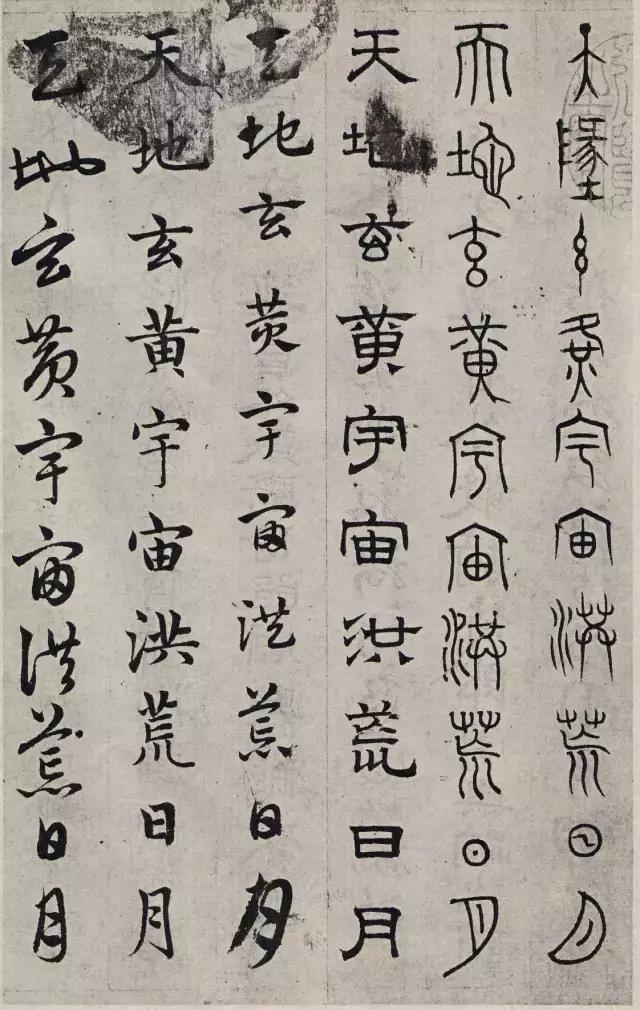 天墬玄黄宇宙洪荒日月
天地玄黄宇宙洪荒日月
天地玄黄宇宙洪荒日月
天地玄黄宇宙洪荒日月
天地玄黄宇宙洪荒日月
天地玄黄宇宙洪荒日月